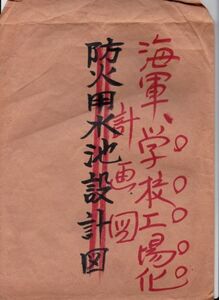 海軍、学校工場化
計画図
防火用水池設計図